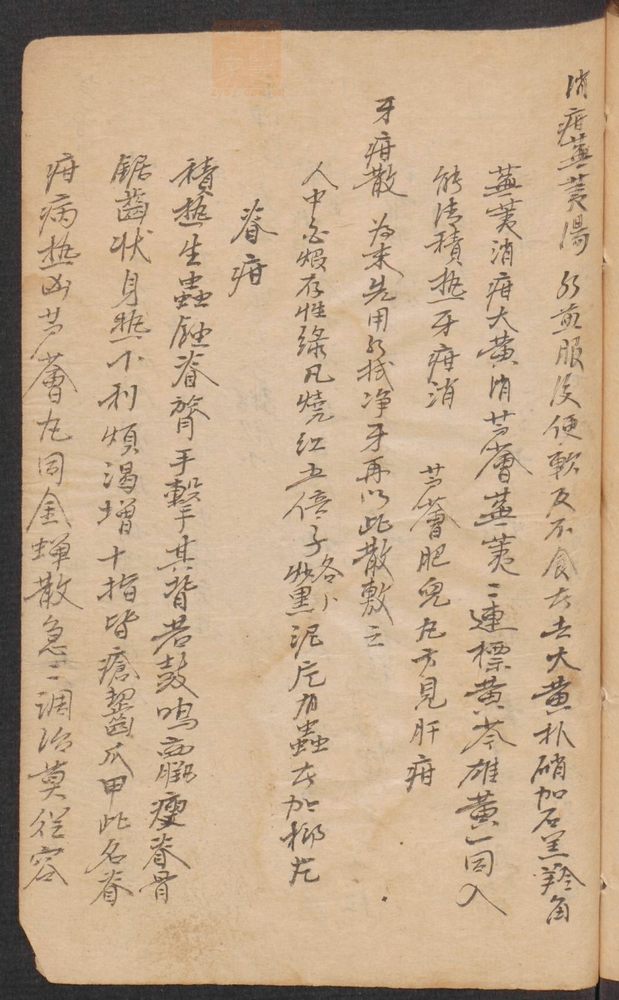 消疳蕪荑湯 水煎服後便軟及不食者去大黃朴硝加石羔羚角
蕪荑消疳大黃消芦薈蕪荑二連標黃芩雄黃一同入
能清積热牙疳消 芦薈肥兒丸方見肝疳
牙疳散 为末先用水拭净牙再以此散敷之
人中白煅存性綠凡燒紅五倍子炒黑各 泥 有蟲者加梹
脊疳
積热生蟲蝕脊膂手擊其背若鼓鳴羸瘦脊骨
鋸齒状身热下利煩渴增十指皆瘡齧爪甲此名脊
疳病热凶芦薈丸同金蟬散急二調治莫從容